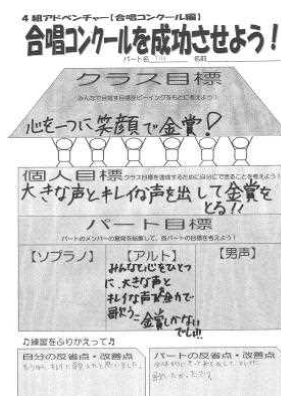 4組アドベンチャー【合唱コンクール編】
合唱コンクールを成功させよう!
パート名
名前
クラス目標
みんなで目指す目標をビーイングをもとに考えよう!
心を一つに笑顔で金賞!
個人目標 クラス目標を達成するために自分にできることを考えよう!
大きな声とキレイな声を出して金賞を
とる!!
パート目標
パートのメンバーの意見を結集して、各パートの目標を考えよう!
【ソプラノ】
【アルト】
【男声】
みんなで心をひとつ
に、大きな声と
キレイな声で全力で
歌う=金賞しかない
でしょ!!!
♫練習をふりかえって♫
自分の反省点・改善点
パートの反省点・改善点